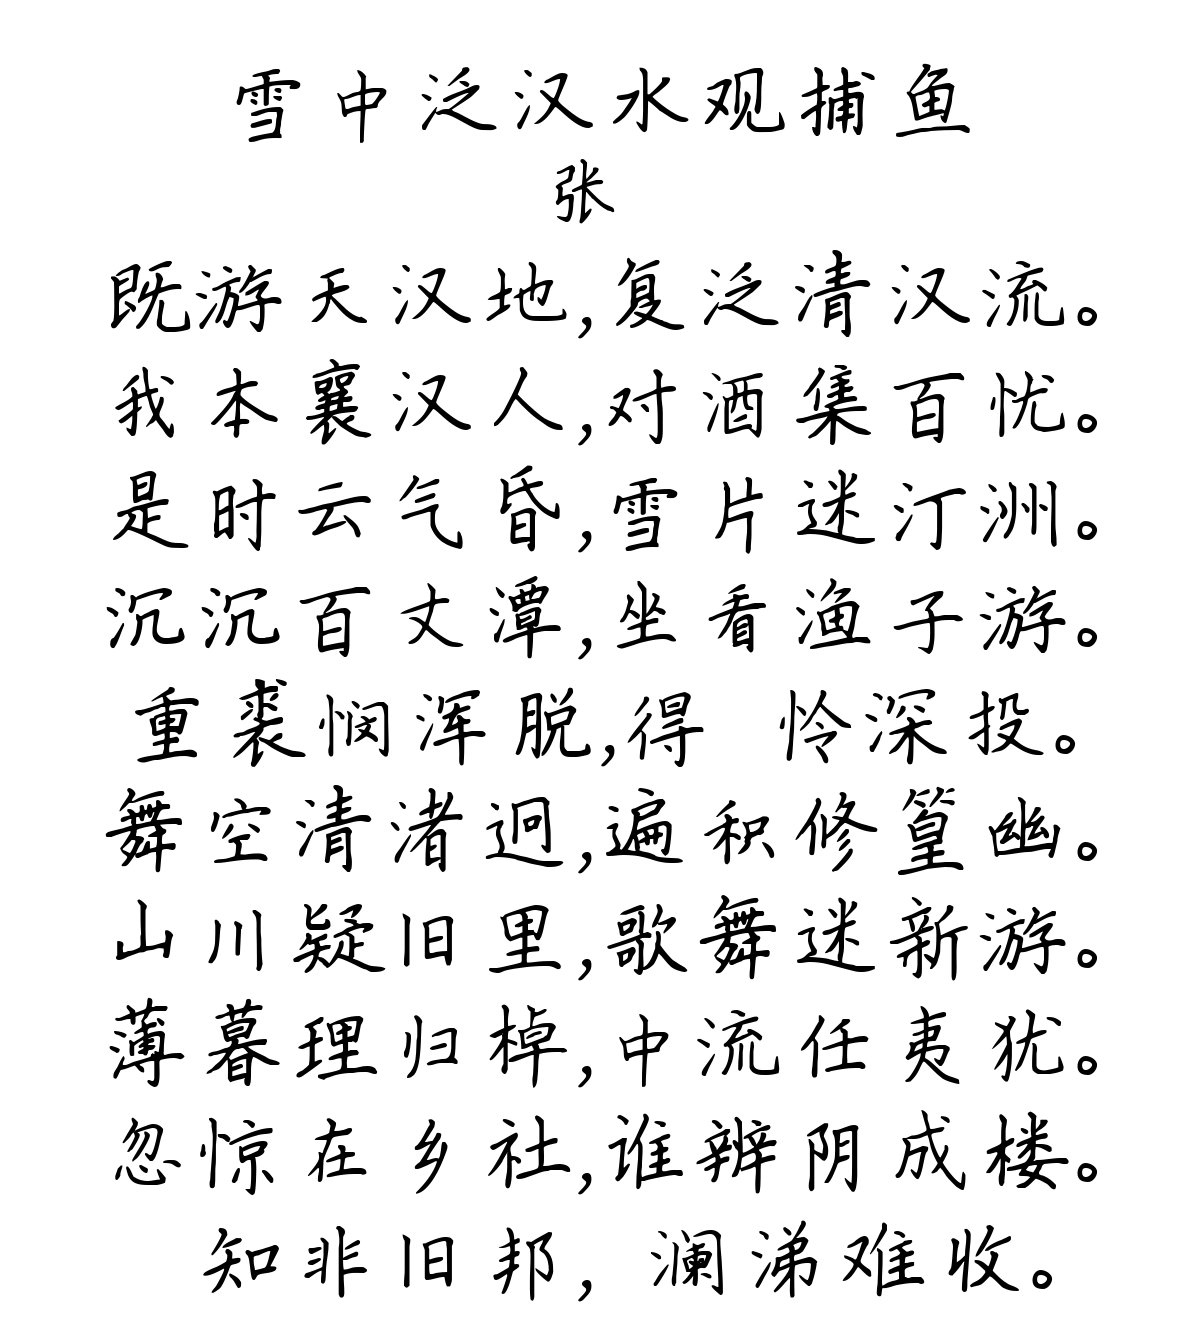 雪中泛汉水观捕鱼
张
既游天汉地,复泛清汉流。
我本襄汉人,对酒集百忧。
是时云气昏,雪片迷汀洲。
沉沉百丈潭,坐看渔子游。
重裘悯浑脱,得 怜深投。
舞空清渚迥,遍积修篁幽。
山川疑旧里,歌舞迷新游。
薄暮理归棹,中流任夷犹。
忽惊在乡社,谁辨阴成楼。
知非旧邦,澜涕难收。